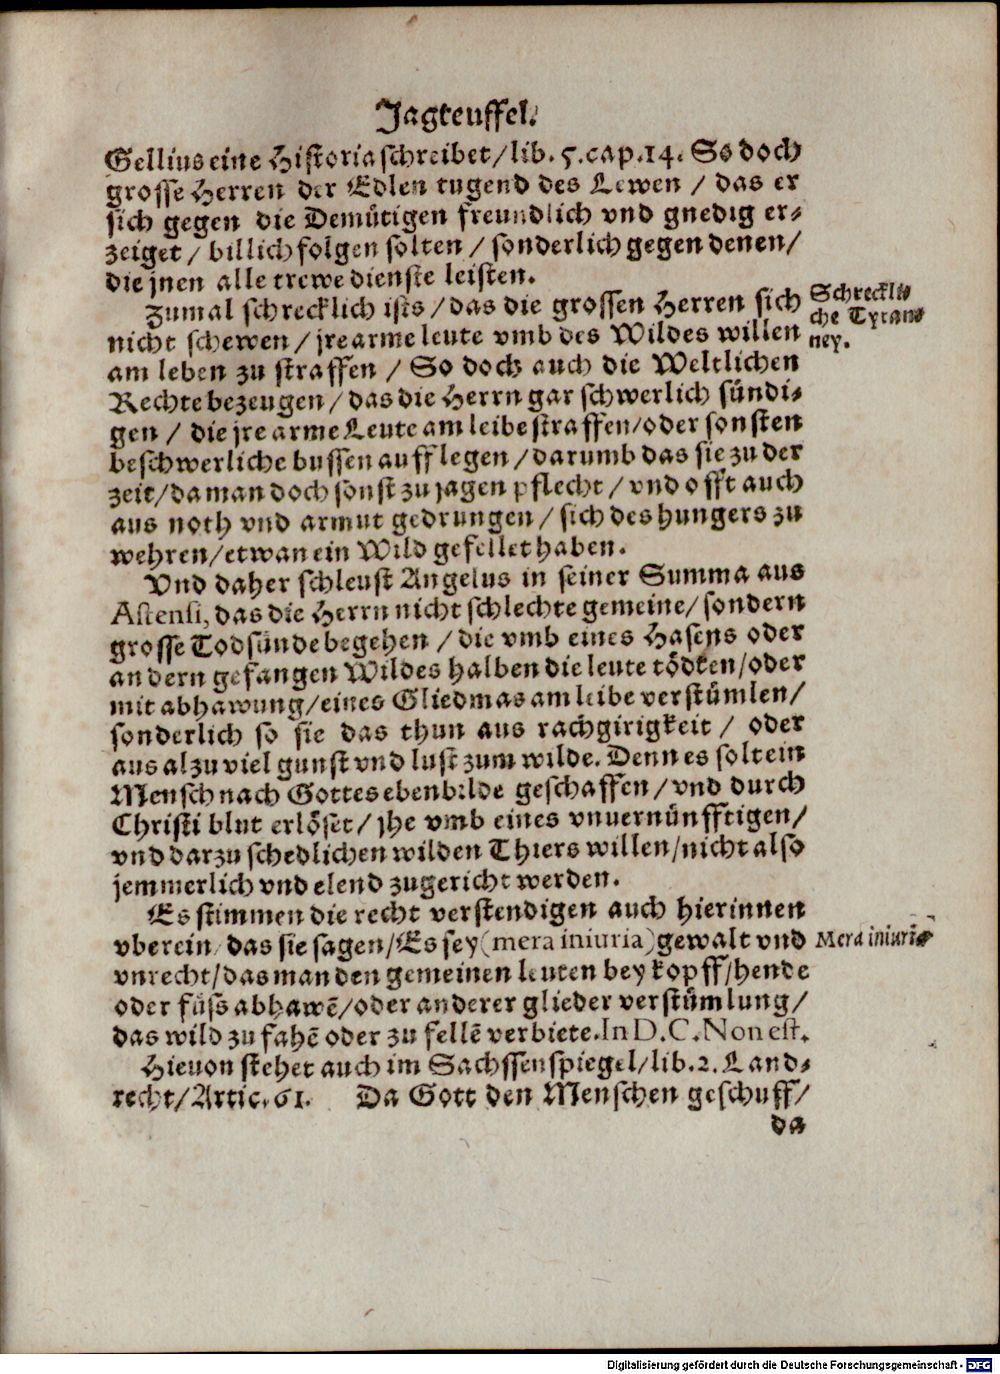 Jagteuffel.
Gellius eine Historia schreibet/lib. 5. cap. 14. So doch
grosse Herren der Edlen tugend des Lewen / das er
sich gegen die Demütigen freundlich vnd gnedig er-
zeiget / billich folgen solten / sonderlich gegen denen/
die jnen alle trewe dienste leisten.
Zumal schrecklich ists / das die grossen Herren sich
Schreckli-
che Tyran-
ney.
nicht schewen / jre arme leute vmb des Wildes willen
am leben zu straffen / So doch auch die Weltlichen
Rechte bezeugen / das die Herrn gar schwerlich sündi-
gen / die jre arme Leute am leibe straffen/oder sonsten
beschwerliche bussen aufflegen / darumb das sie zu der
zeit/da man doch sonst zu jagen pflecht / vnd offt auch
aus noth vnd armut gedrungen / sich des hungers zu
wehren/etwan ein Wild gefellet haben.
Vnd daher schleust Angelus in seiner Summa aus
Astensi, das die Herrn nicht schlechte gemeine/ sondern
grosse Todsünde begehen / die vmb eines Hasens oder
andern gefangen Wildes halben die leute tödten/oder
mit abhawung/eines Gliedmas am leibe verstümlen/
sonderlich so sie das thun aus rachgirigkeit / oder
aus alzu viel gunst vnd lust zum wilde. Denn es solt ein
Mensch nach Gottes ebenbilde geschaffen / vnd durch
Christi blut erlöset/ jhe vmb eines vnuernünfftigen/
vnd darzu schedlichen wilden Thiers willen/nicht also
jemmerlich vnd elend zugericht werden.
Es stimmen die recht verstendigen auch hierinnen
vberein/ das sie sagen/Es sey (mera iniuria) gewalt vnd
Mera iniuria
vnrecht/das man den gemeinen leuten bey kopff/hende
oder füss abhawẽ/oder anderer glieder verstümlung/
das wild zu fahẽ oder zu fellẽ verbiete. In D. C. Non est.
Hieuon stehet auch im Sachssenspiegel/lib. 2. Land-
recht/Artic. 61. Da Gott den Menschen geschuff/
da
Digitalisierung gefördert durch die Deutsche Forschungsgemeinschaft - DFG